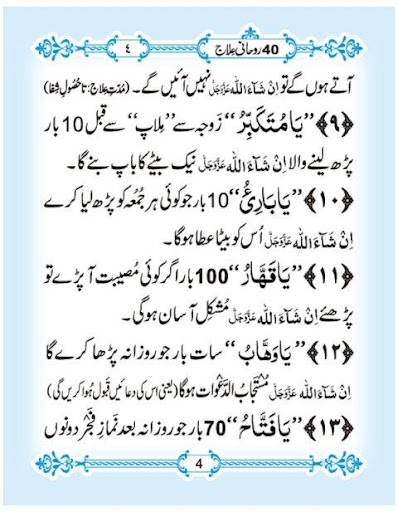 40 روحانی علاج ٤
آتے ہوں گے تو اِنْ شَآءَ اللہ عَزَّوَجَلَّ نہیں آئیں گے۔ (مُدّتِ علاج: تا حُصولِ شِفا)
﴿۹﴾ ’’یَا مُتَکَبِّرُ‘‘ زَوجہ سے ’’مِلاپ‘‘ سے قبل 10 بار
پڑھ لینے والا اِنْ شَآءَ اللہ عَزَّوَجَلَّ نیک بیٹے کا باپ بنے گا۔
﴿۱۰﴾ ’’یَا بَارِئُ‘‘ 10 بار جو کوئی ہر جُمُعہ کو پڑھ لیا کرے
اِنْ شَآءَ اللہ عَزَّوَجَلَّ اُس کو بیٹا عطا ہوگا۔
﴿۱۱﴾ ’’یَا قَهَّارُ‘‘ 100 بار اگر کوئی مُصیبت آ پڑے تو
پڑھئے اِنْ شَآءَ اللہ عَزَّوَجَلَّ مُشکِل آسان ہوگی۔
﴿۱۲﴾ ’’یَا وَهَّابُ‘‘ سات بار جو روزانہ پڑھا کرے گا
اِنْ شَآءَ اللہ عَزَّوَجَلَّ مُسْتَجابُ الدَّعْوات ہوگا (یعنی اس کی دعائیں قبول ہوا کریں گی)
﴿۱۳﴾ ’’یَا فَتَّاحُ‘‘ 70 بار جو روزانہ بعد نَمازِ فَجْر دونوں
4